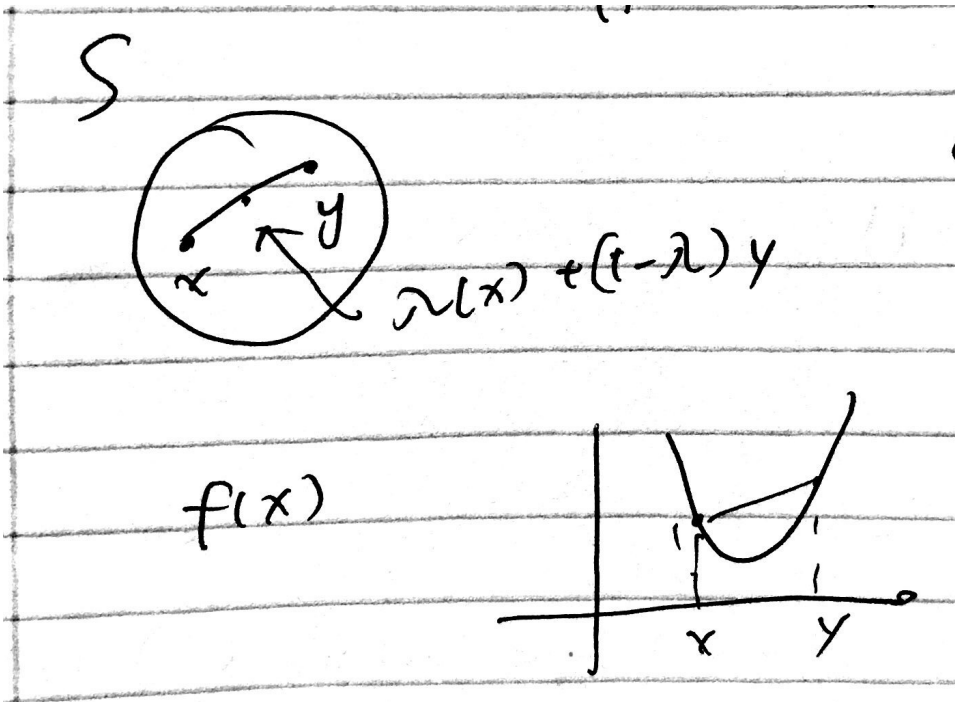 S
y
x
λ(x) + (1-λ) y
f(x)
x y